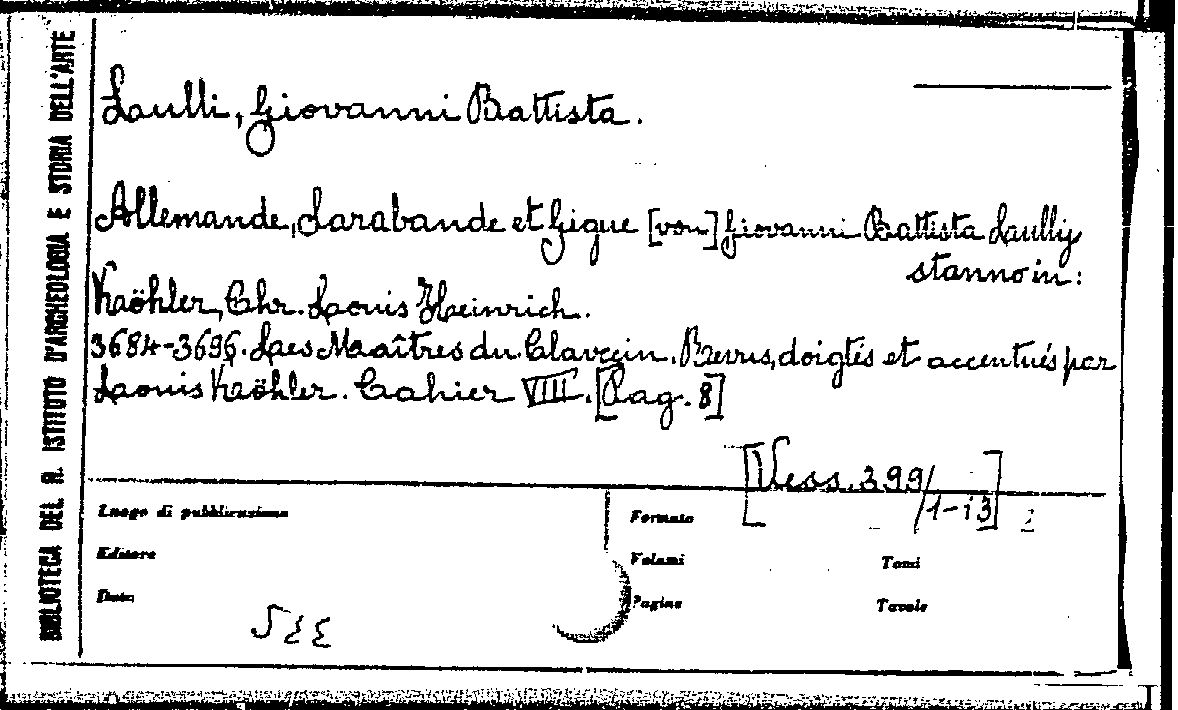 BIBLIOTECA DEL R. ISTITUTO D'ARCHEOLOGIA E STORIA DELL'ARTE
Laulli, Giovanni Battista.
Allemande, Sarabande et Gigue [von] Giovanni Battista Laullij
stanno in:
Kaöhler, Chr. Laouis Heinrich.
3684-3696. Laes Maaîtres du Clavecin. Revus, doigtés et accentués par
Laouis Kaöhler. Cahier VIII. [Pag. 8]
[Vess. 399/1-13]
Luogo di pubblicazione
Formato
Editore
Volumi
Tomi
Data
Pagine
Tavole